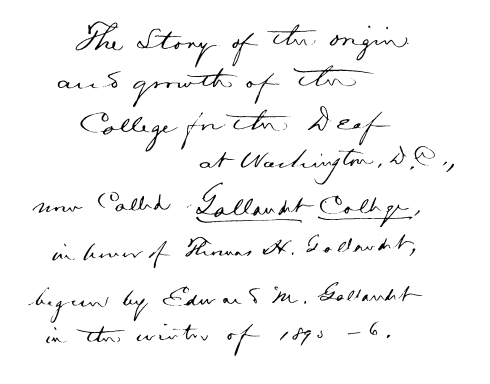 The Story of the origin
and growth of the
College for the Deaf
at Washington, D.C.,
now Called Gallaudet College,
in honor of Thomas H. Gallaudet,
begun by Edward M. Gallaudet
in the winter of 1895 - 6.